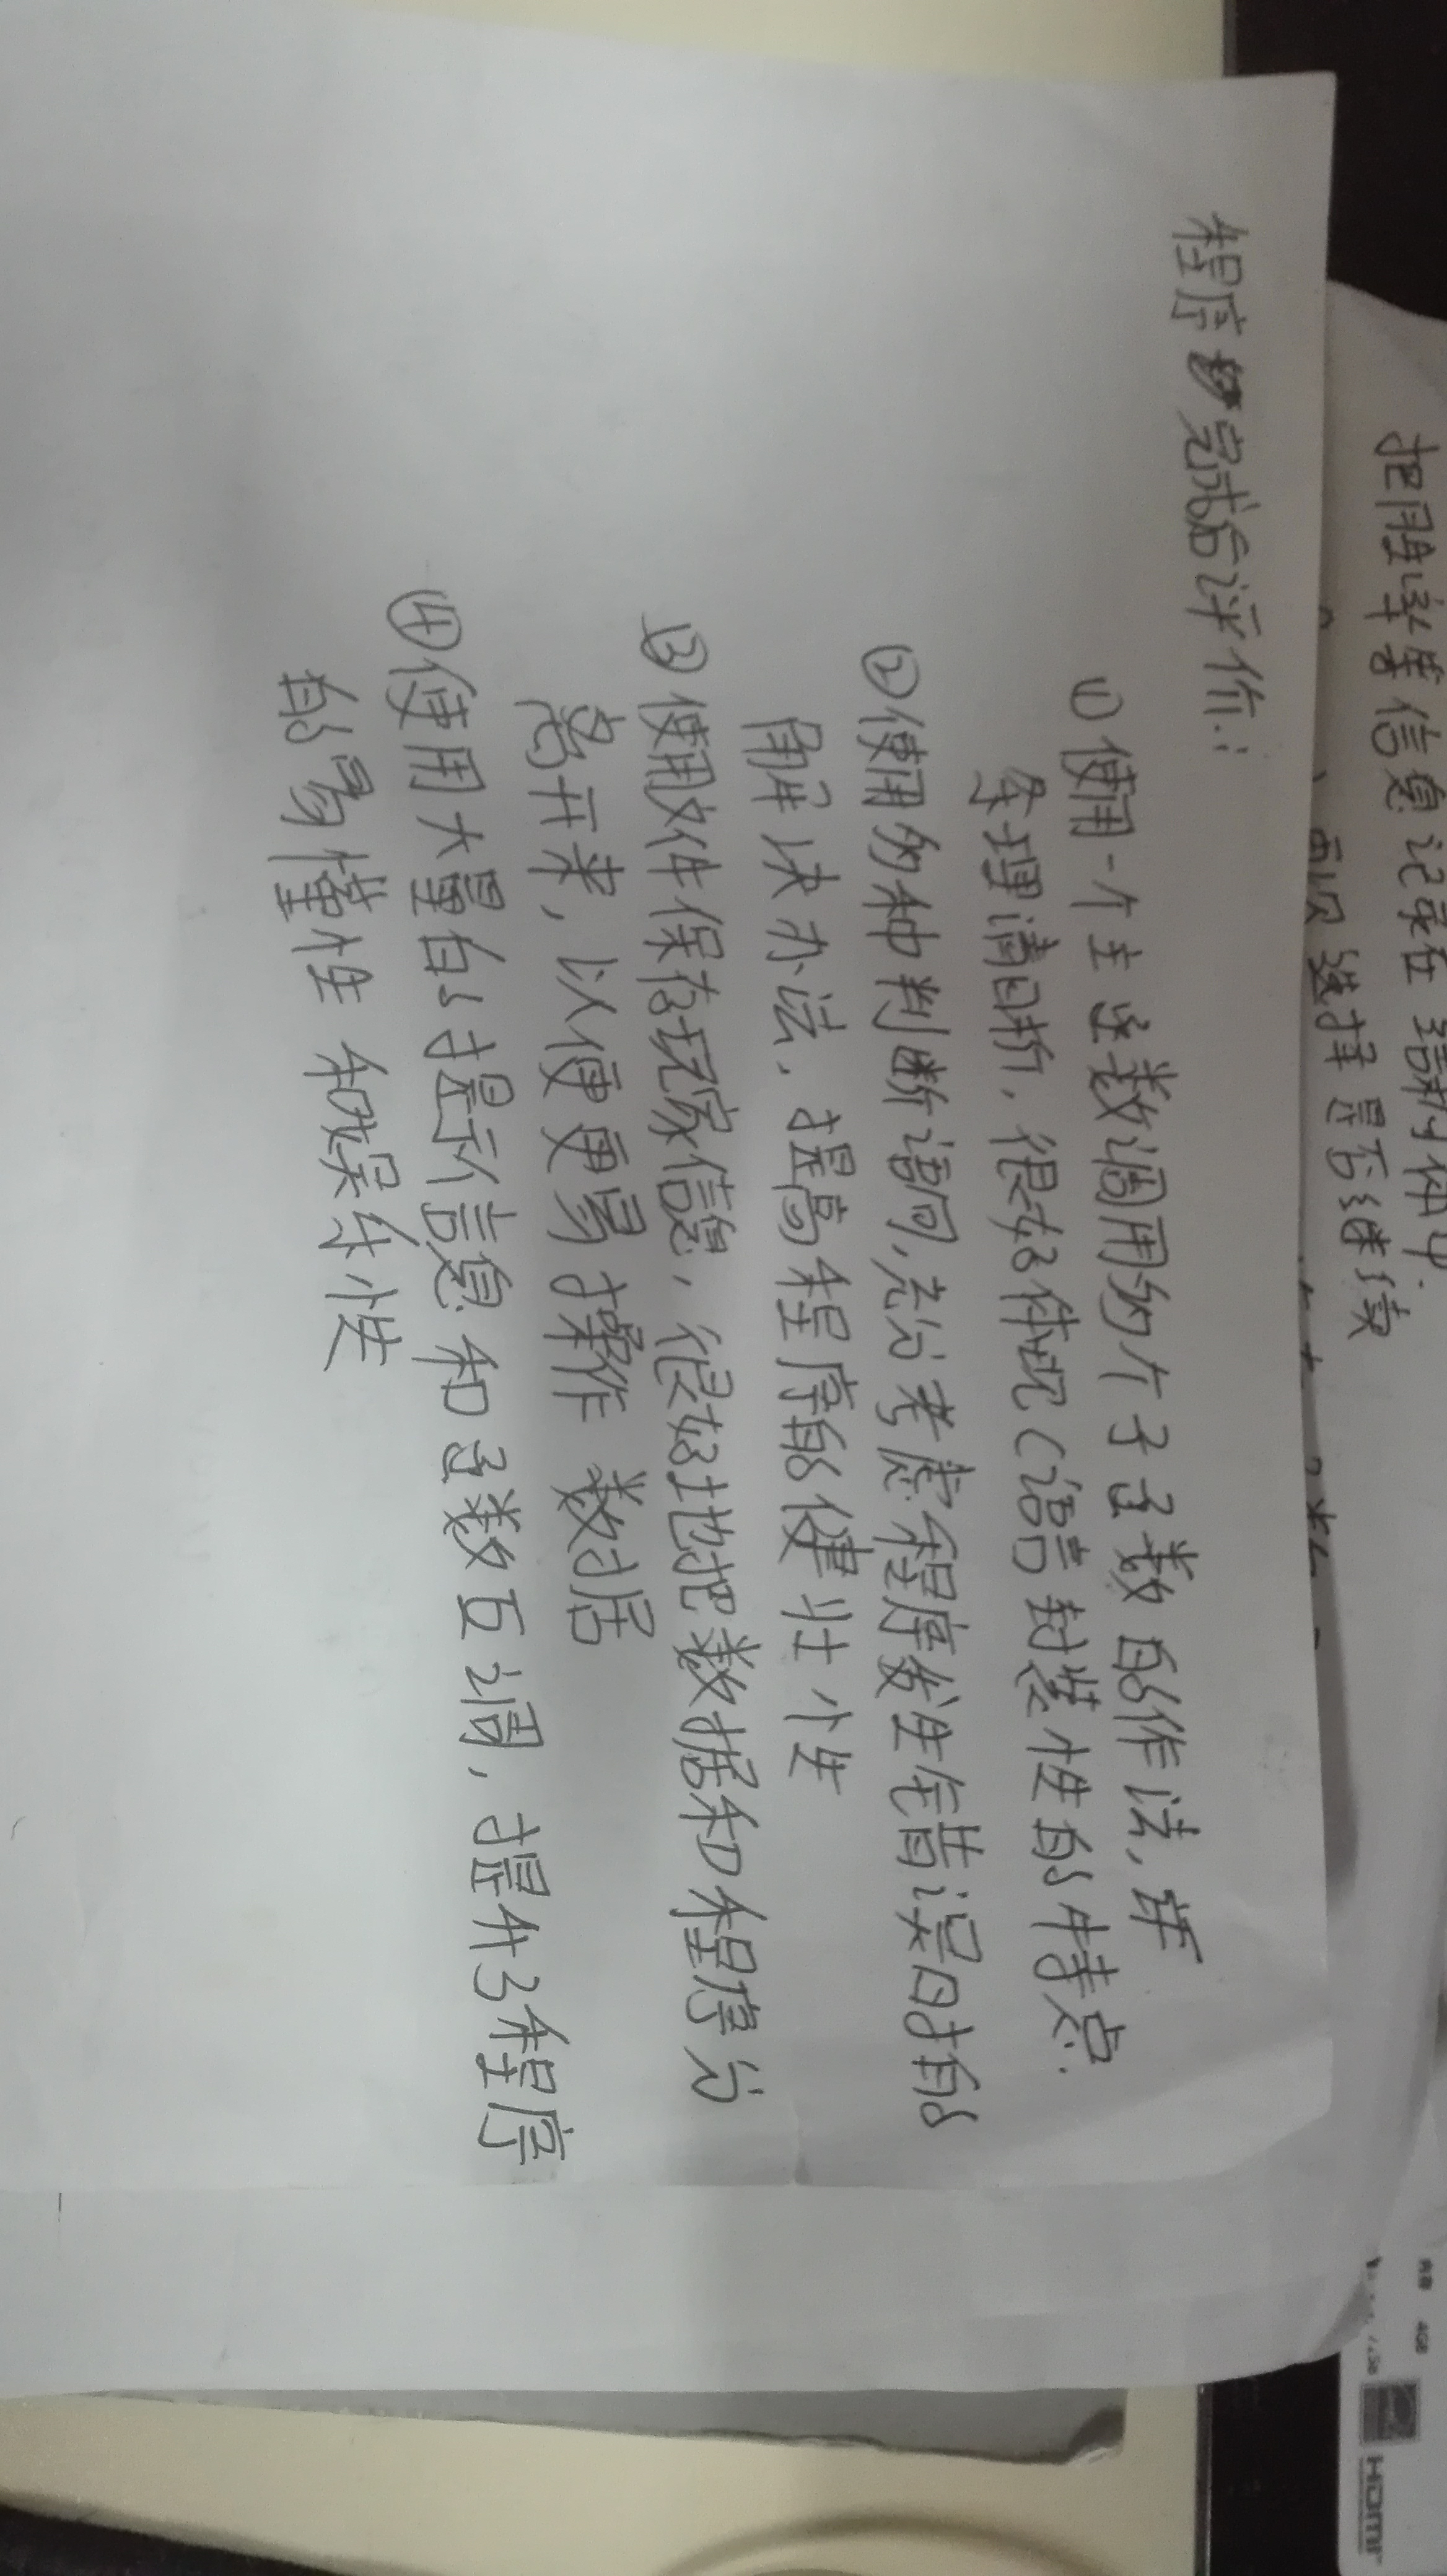 把胜率等信息记录在结构体中.
再次选择是否继续
内存 4GB
HDMI
程序完成后评价:
①使用一个主函数调用多个子函数的作法,
条理清晰,很好体现C语言封装性的特点.
②使用多种判断语句,充分考虑程序发生错误时的
解决办法,提高程序的健壮性
③使用文件保存玩家信息,很好地把数据和程序分
离开来,以便更易操作数据
④使用大量的提示信息和函数互调,提升了程序
的易懂性和娱乐性